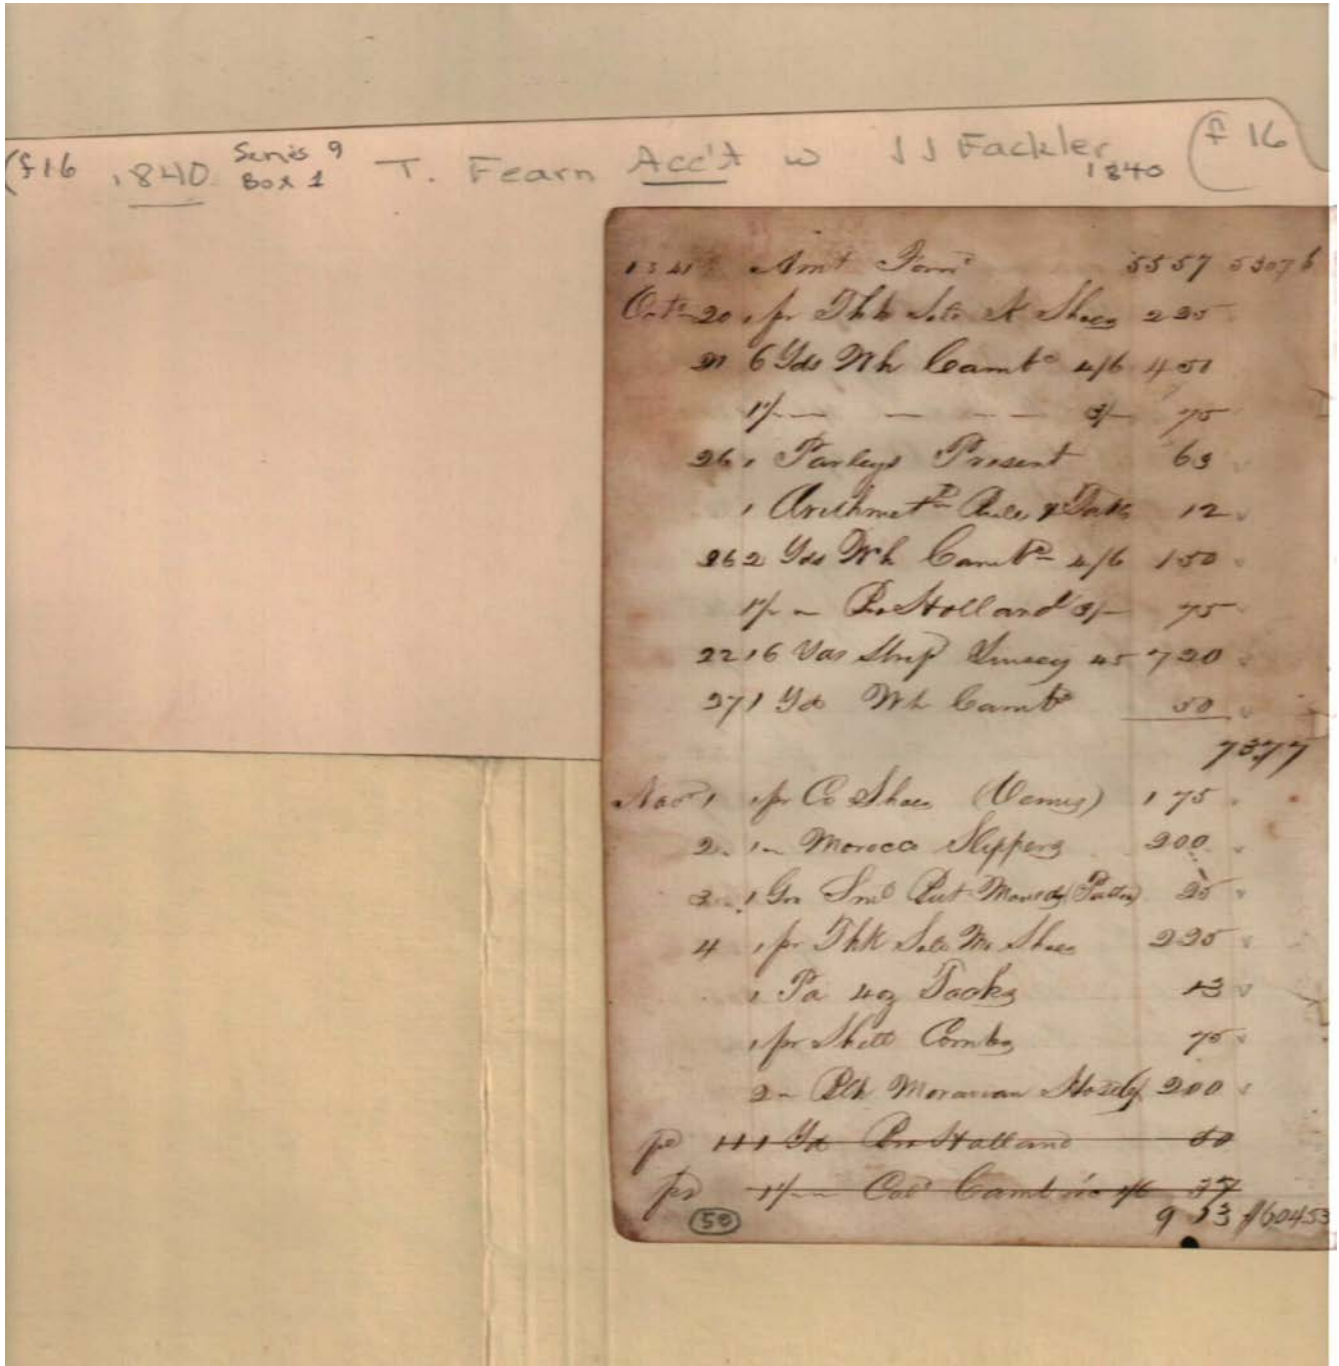 (f16 1840 Series 9 T. Fearn Acc't w JJ Fackler (f 16
Box 1 1840
Amt Forwd 5557 53076
Oct 20 1 pr Thk Sole Shoes 225
21 6 Yds Wh Cambc 4/6 4 51
1½ — — — — 3/– 75
26 1 Parleys Present 63
1 Arithmetl Rules & Tab 12
26 2 Yds Wh Cambc 4/6 150
1½ " Bro Holland 3/– 75
22 16 Yds Strip Linsey 45 720
27 1 Yd Wh Cambc 50
7377
Nov 1 1 pr Co Shoes (Venus) 175
2 1 " Morocco Slippers 200
3 1 Gro Smd But 25
4 1 pr Thk Sole Mo Shoes 225
1 Pa 4oz Tacks 13
1 pr Shell Combs 75
2 " Blk Moravian Hose 200
pd 11 1 Yd Bro Holland 50
pd 1½ " Cold Cambric 37
50 9 13 $60453